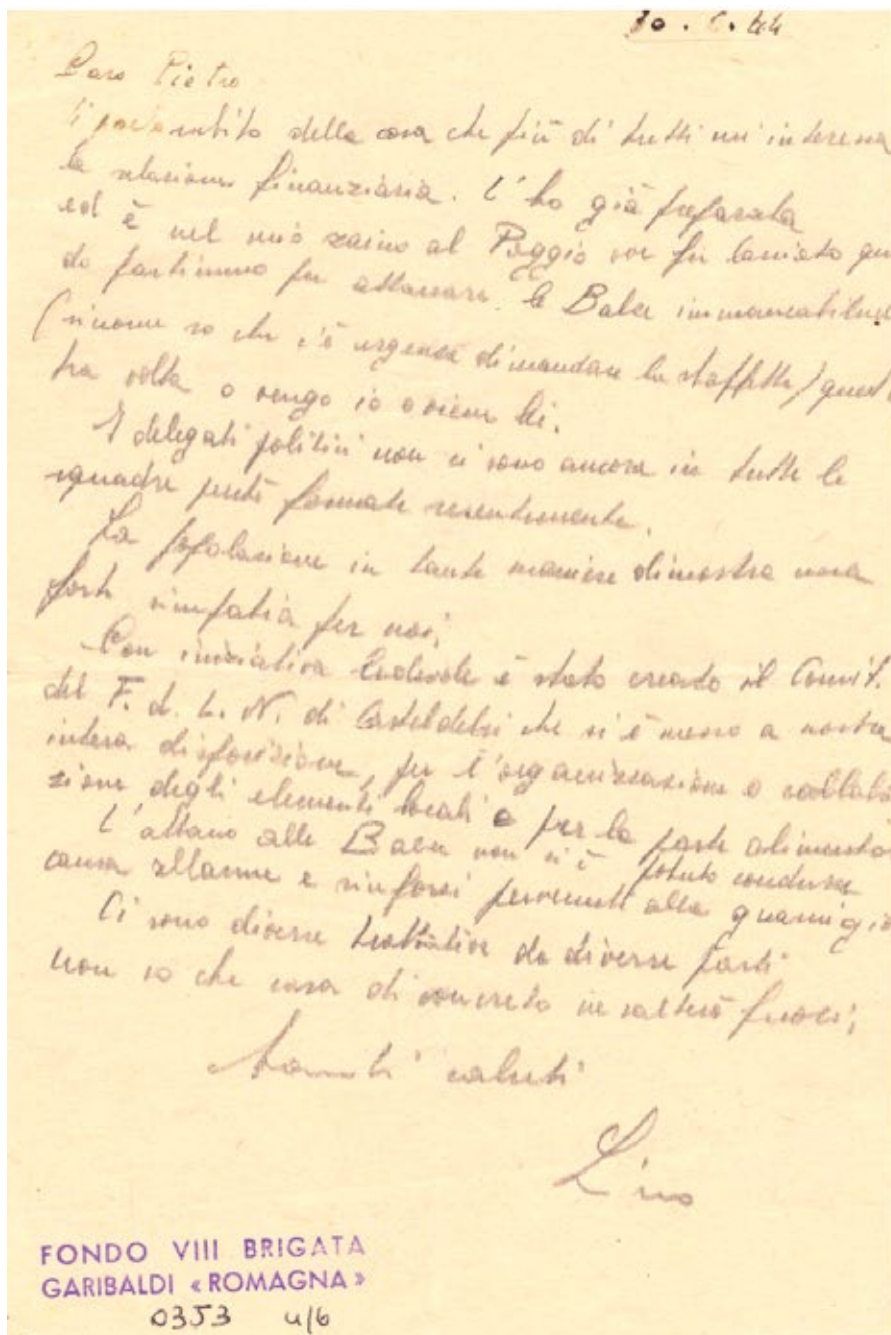 30. . 44
Caro Pietro
ti parlo subito della cosa che più di tutti mi interessa
la relazione finanziaria. L'ho già preparata
ed è nel mio zaino al Poggio ove fu lasciato qu
do partimmo per attaccare le Balze
(siccome so che c'è urgenza di mandare la staffetta) quest
tra volta o vengo io o viene lei.
I delegati politici non ci sono ancora in tutte le
squadre perché formate recentemente.
La popolazione in tante maniere dimostra una
forte simpatia per noi;
Con iniziativa lodevole è stato creato il Comit.
del F. d. L. N. di Casteldelci che si è messo a nostra
intera disposizione, per l'organizzazione e collabo
zione degli elementi locali e per la parte alimenta
L'attacco alle Balze non si è potuto condurre
causa allarme e rinforzi pervenuti alla guarnigio
Ci sono diverse trattative da diverse parti
non so che cosa di concreto ne salterà fuori;
saluti
Lino
FONDO VIII BRIGATA
GARIBALDI «ROMAGNA»
0353 u/6